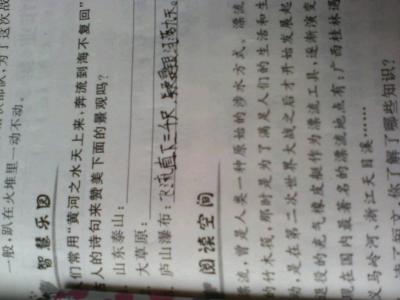 为了这次战
一般,趴在火堆里一动不动。
智慧乐园
们常用“黄河之水天上来,奔流到海不复回”
古人的诗句来赞美下面的景观吗?
山东泰山:
大草原:
庐山瀑布:飞流直下三千尺,
阅读空间
漂流,曾是人类一种原始的涉水方式。漂流
的竹木筏,那时是为了满足人们的生活和生
动,是在第二次世界大战之后才开始发展起
退役的充气橡皮艇作为漂流工具,逐渐演变
现在国内最著名的漂流地点有:广西桂林遇
义马岭河、浙江天目溪……
了短文,你了解了哪些知识?